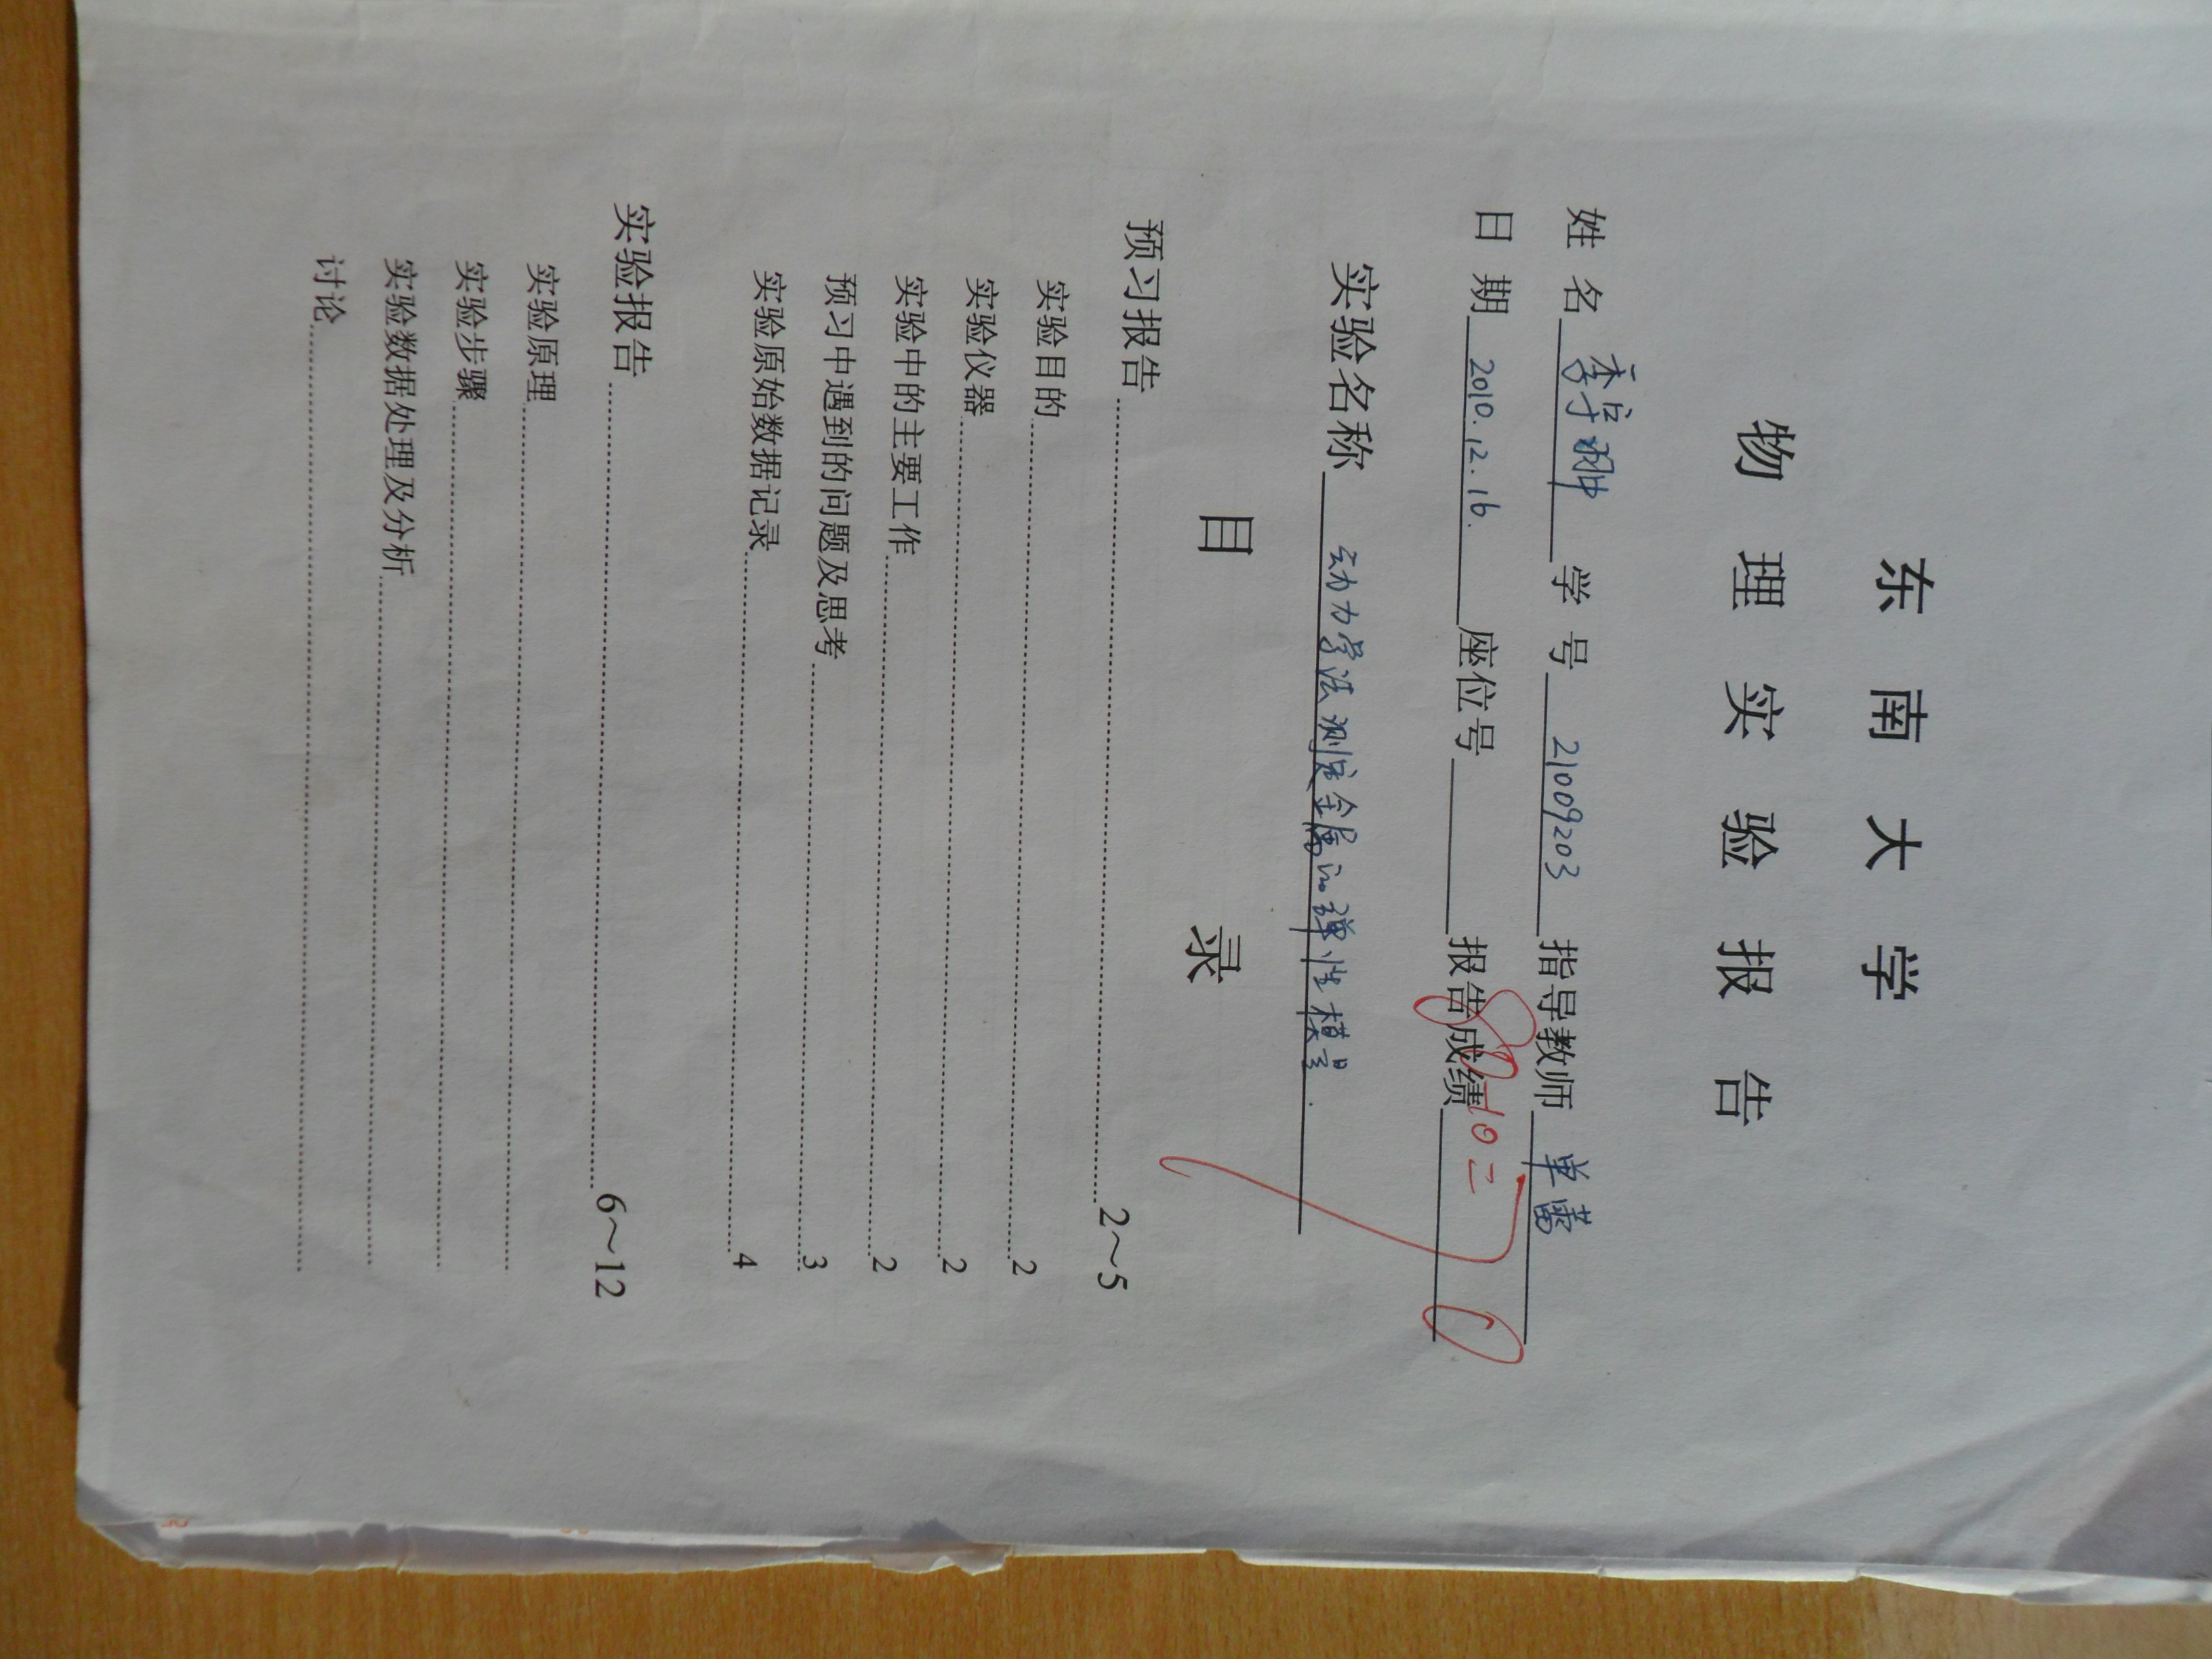 东南大学
物理实验报告
姓 名 学 号 21009203 指导教师 单蕾
日 期 2010.12.16. 座位号 报告成绩
实验名称 动力学法测定金属的弹性模量.
目 录
预习报告 2～5
实验目的 2
实验仪器 2
实验中的主要工作 2
预习中遇到的问题及思考 3
实验原始数据记录 4
实验报告 6～12
实验原理
实验步骤
实验数据处理及分析
讨论